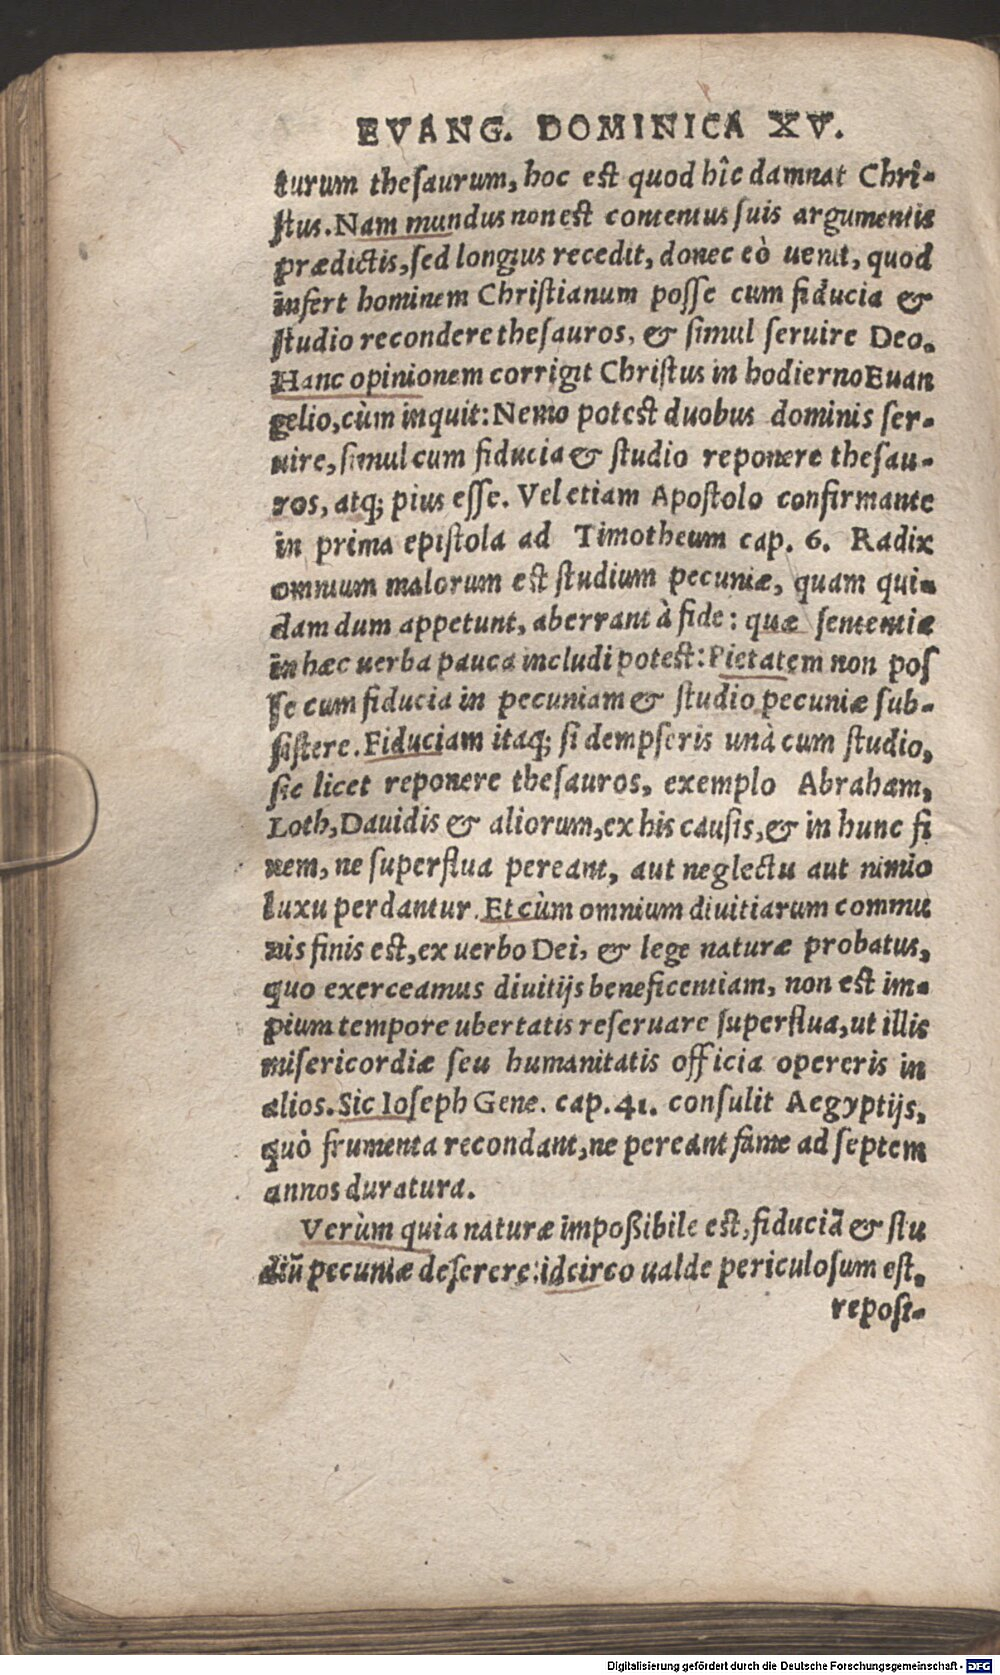 EVANG. DOMINICA XV.
turum theſaurum, hoc eſt quod hîc damnat Chri-
ſtus. Nam mundus non eſt contentus ſuis argumentis
prædictis, ſed longius recedit, donec eò uenit, quod
infert hominem Chriſtianum poſſe cum fiducia &
ſtudio recondere theſauros, & ſimul ſeruire Deo.
Hanc opinionem corrigit Chriſtus in hodierno Euan
gelio, cùm inquit: Nemo poteſt duobus dominis ſer-
uire, ſimul cum fiducia & ſtudio reponere theſau-
ros, atq; pius eſſe. Vel etiam Apoſtolo confirmante
in prima epiſtola ad Timotheum cap. 6. Radix
omnium malorum eſt ſtudium pecuniæ, quam qui-
dam dum appetunt, aberrant à fide: quæ ſententiæ
in hæc uerba pauca includi poteſt: Pietatem non poſ
ſe cum fiducia in pecuniam & ſtudio pecuniæ ſub-
ſiſtere. Fiduciam itaq; ſi dempſeris unà cum ſtudio,
ſic licet reponere theſauros, exemplo Abraham,
Loth, Dauidis & aliorum, ex his cauſis, & in hunc fi
nem, ne ſuperflua pereant, aut neglectu aut nimio
luxu perdantur. Et cùm omnium diuitiarum commu
nis finis eſt, ex uerbo Dei, & lege naturæ probatus,
quo exerceamus diuitijs beneficentiam, non eſt im-
pium tempore ubertatis reſeruare ſuperflua, ut illis
miſericordiæ ſeu humanitatis officia opereris in
alios. Sic Ioſeph Gene. cap. 41. conſulit Aegyptijs,
quò frumenta recondant, ne pereant fame ad ſeptem
annos duratura.
Verùm quia naturæ impoßibile eſt, fiduciã & ſtu
diũ pecuniæ deſerere: idcirco ualde periculoſum eſt,
repoſi-
Digitalisierung gefördert durch die Deutsche Forschungsgemeinschaft - DFG